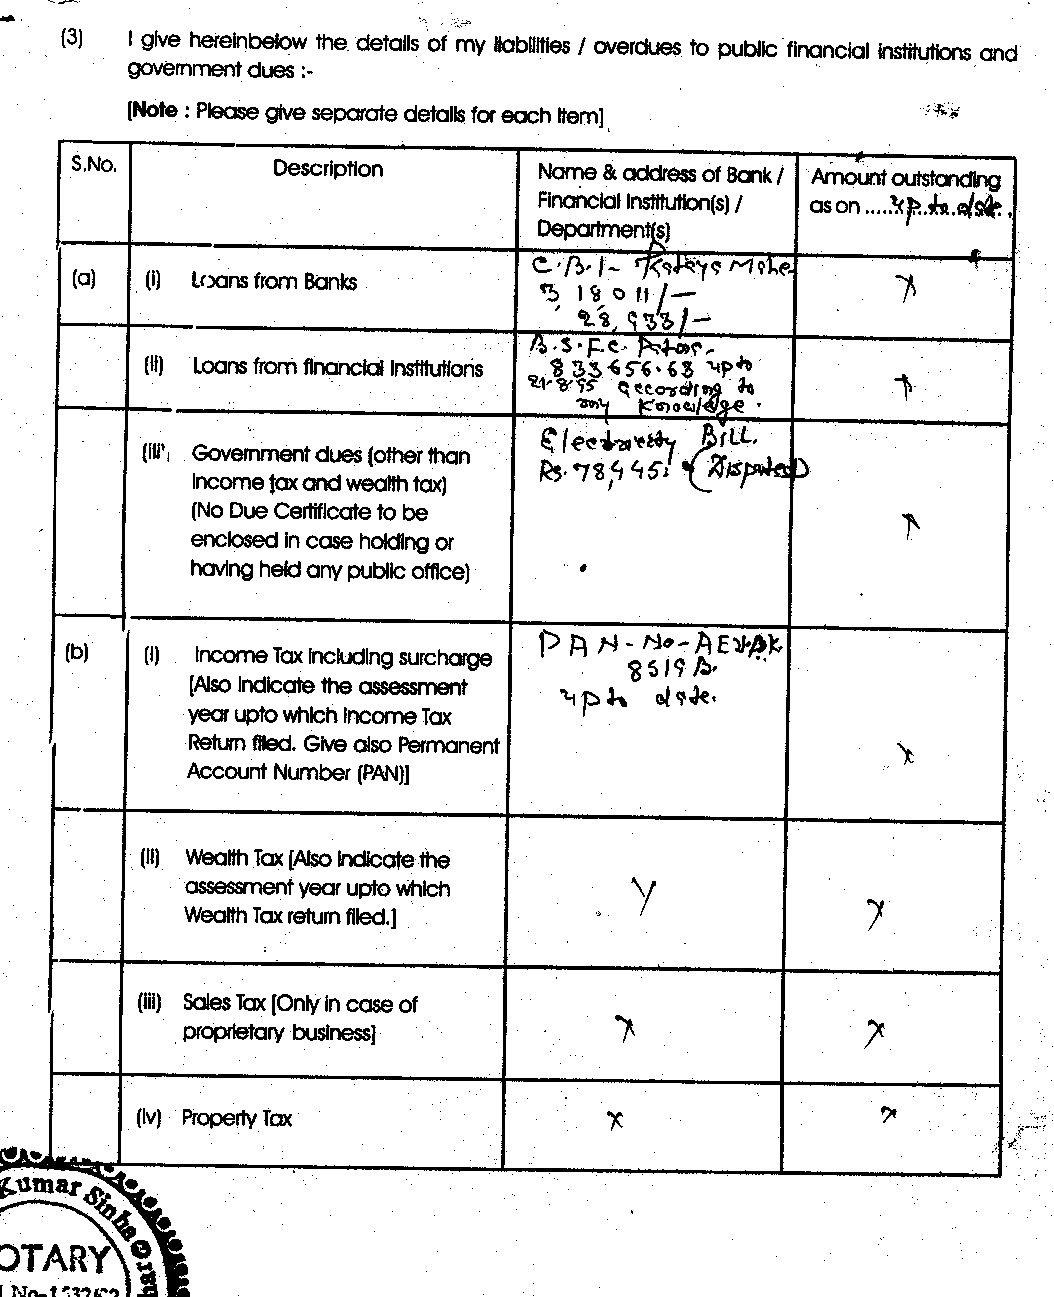 (3) I give hereinbelow the details of my liabilities / overdues to public financial institutions and
government dues :-
[Note : Please give separate details for each item]
S.No. Description Name & address of Bank / Financial Institution(s) / Department(s) Amount outstanding as on ...... upto date.
(a) (i) Loans from Banks
C.B.I-
3,18,011/-
28,933/-
x
(ii) Loans from financial Institutions
B.S.F.C.
833656.68 upto
according to
my knowledge.
x
(iii) Government dues (other than
income tax and wealth tax)
(No Due Certificate to be
enclosed in case holding or
having held any public office)
Electricity BILL.
Rs. 78,445: (Disputed)
x
(b) (i) Income Tax including surcharge
[Also indicate the assessment
year upto which Income Tax
Return filed. Give also Permanent
Account Number (PAN)]
PAN-No-
8519B.
upto date.
x
(ii) Wealth Tax [Also indicate the
assessment year upto which
Wealth Tax return filed.]
x x
(iii) Sales Tax [Only in case of
proprietary business]
x x
(iv) Property Tax x x
Kumar Sinha
OTARY